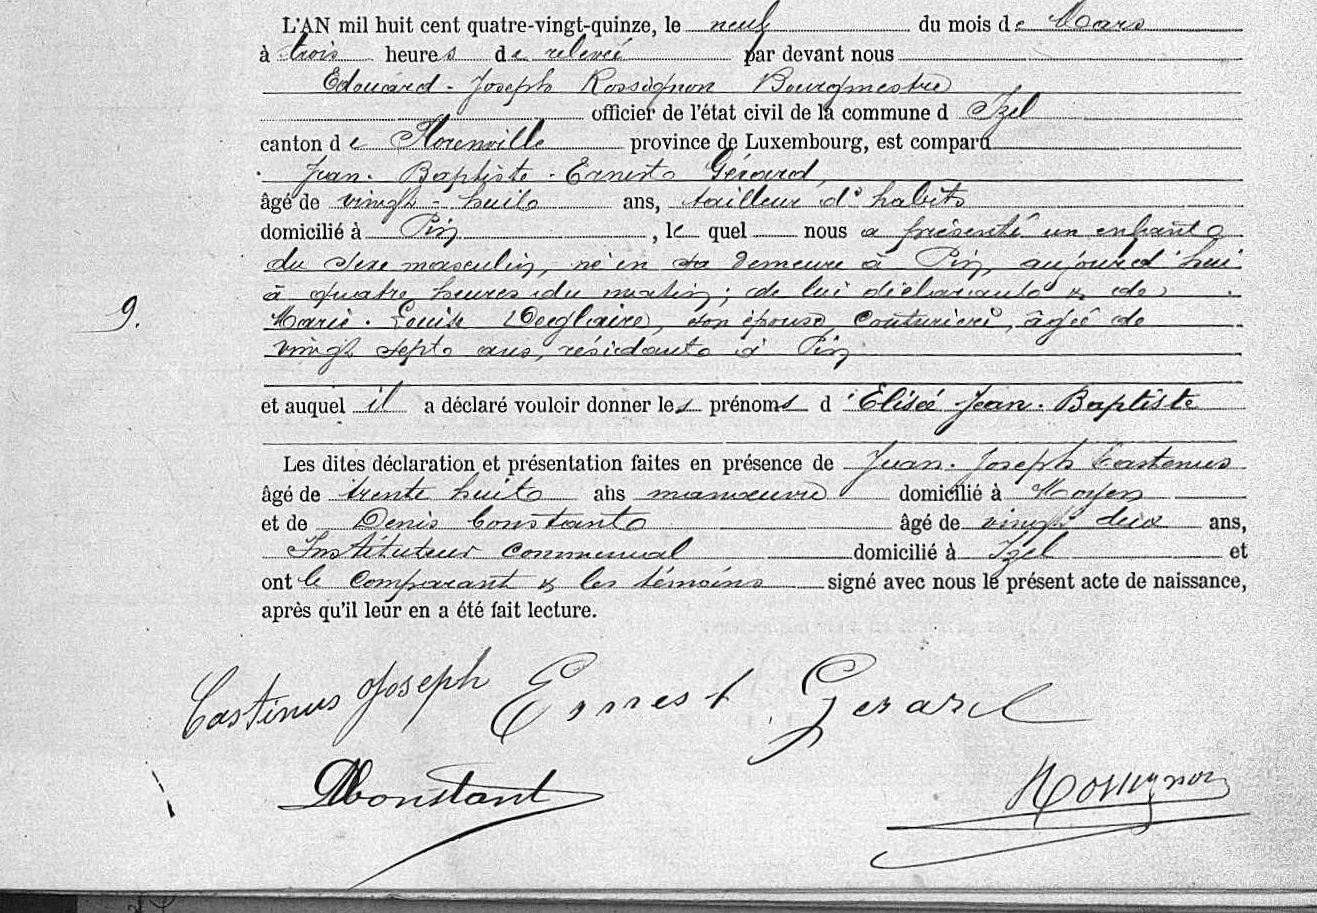 L'AN mil huit cent quatre-vingt-quinze, le neuf du mois de Mars
à trois heures de relevée par devant nous
Edouard-Joseph Rossignon Bourgmestre
officier de l'état civil de la commune d Izel
canton de Florenville province de Luxembourg, est comparu
Jean-Baptiste-Ernest Gérard,
âgé de vingt-huit ans, tailleur d'habits
domicilié à Pin, lequel nous a présenté un enfant
du sexe masculin, né en sa demeure à Pin, aujourd'hui
à quatre heures du matin; de lui déclarant & de
9.
Marie-Louise, son épouse, couturière, âgée de
vingt sept ans, résidant à Pin
et auquel il a déclaré vouloir donner les prénoms d'Elisée Jean-Baptiste
Les dites déclaration et présentation faites en présence de Jean-Joseph Castenus
âgé de trente huit ans manœuvre domicilié à Moyen
et de Denis Constant âgé de vingt deux ans,
Instituteur communal domicilié à Izel et
ont le comparant & les témoins signé avec nous le présent acte de naissance,
après qu'il leur en a été fait lecture.
Castinus Joseph Ernest Gerard
DConstant Rossignon